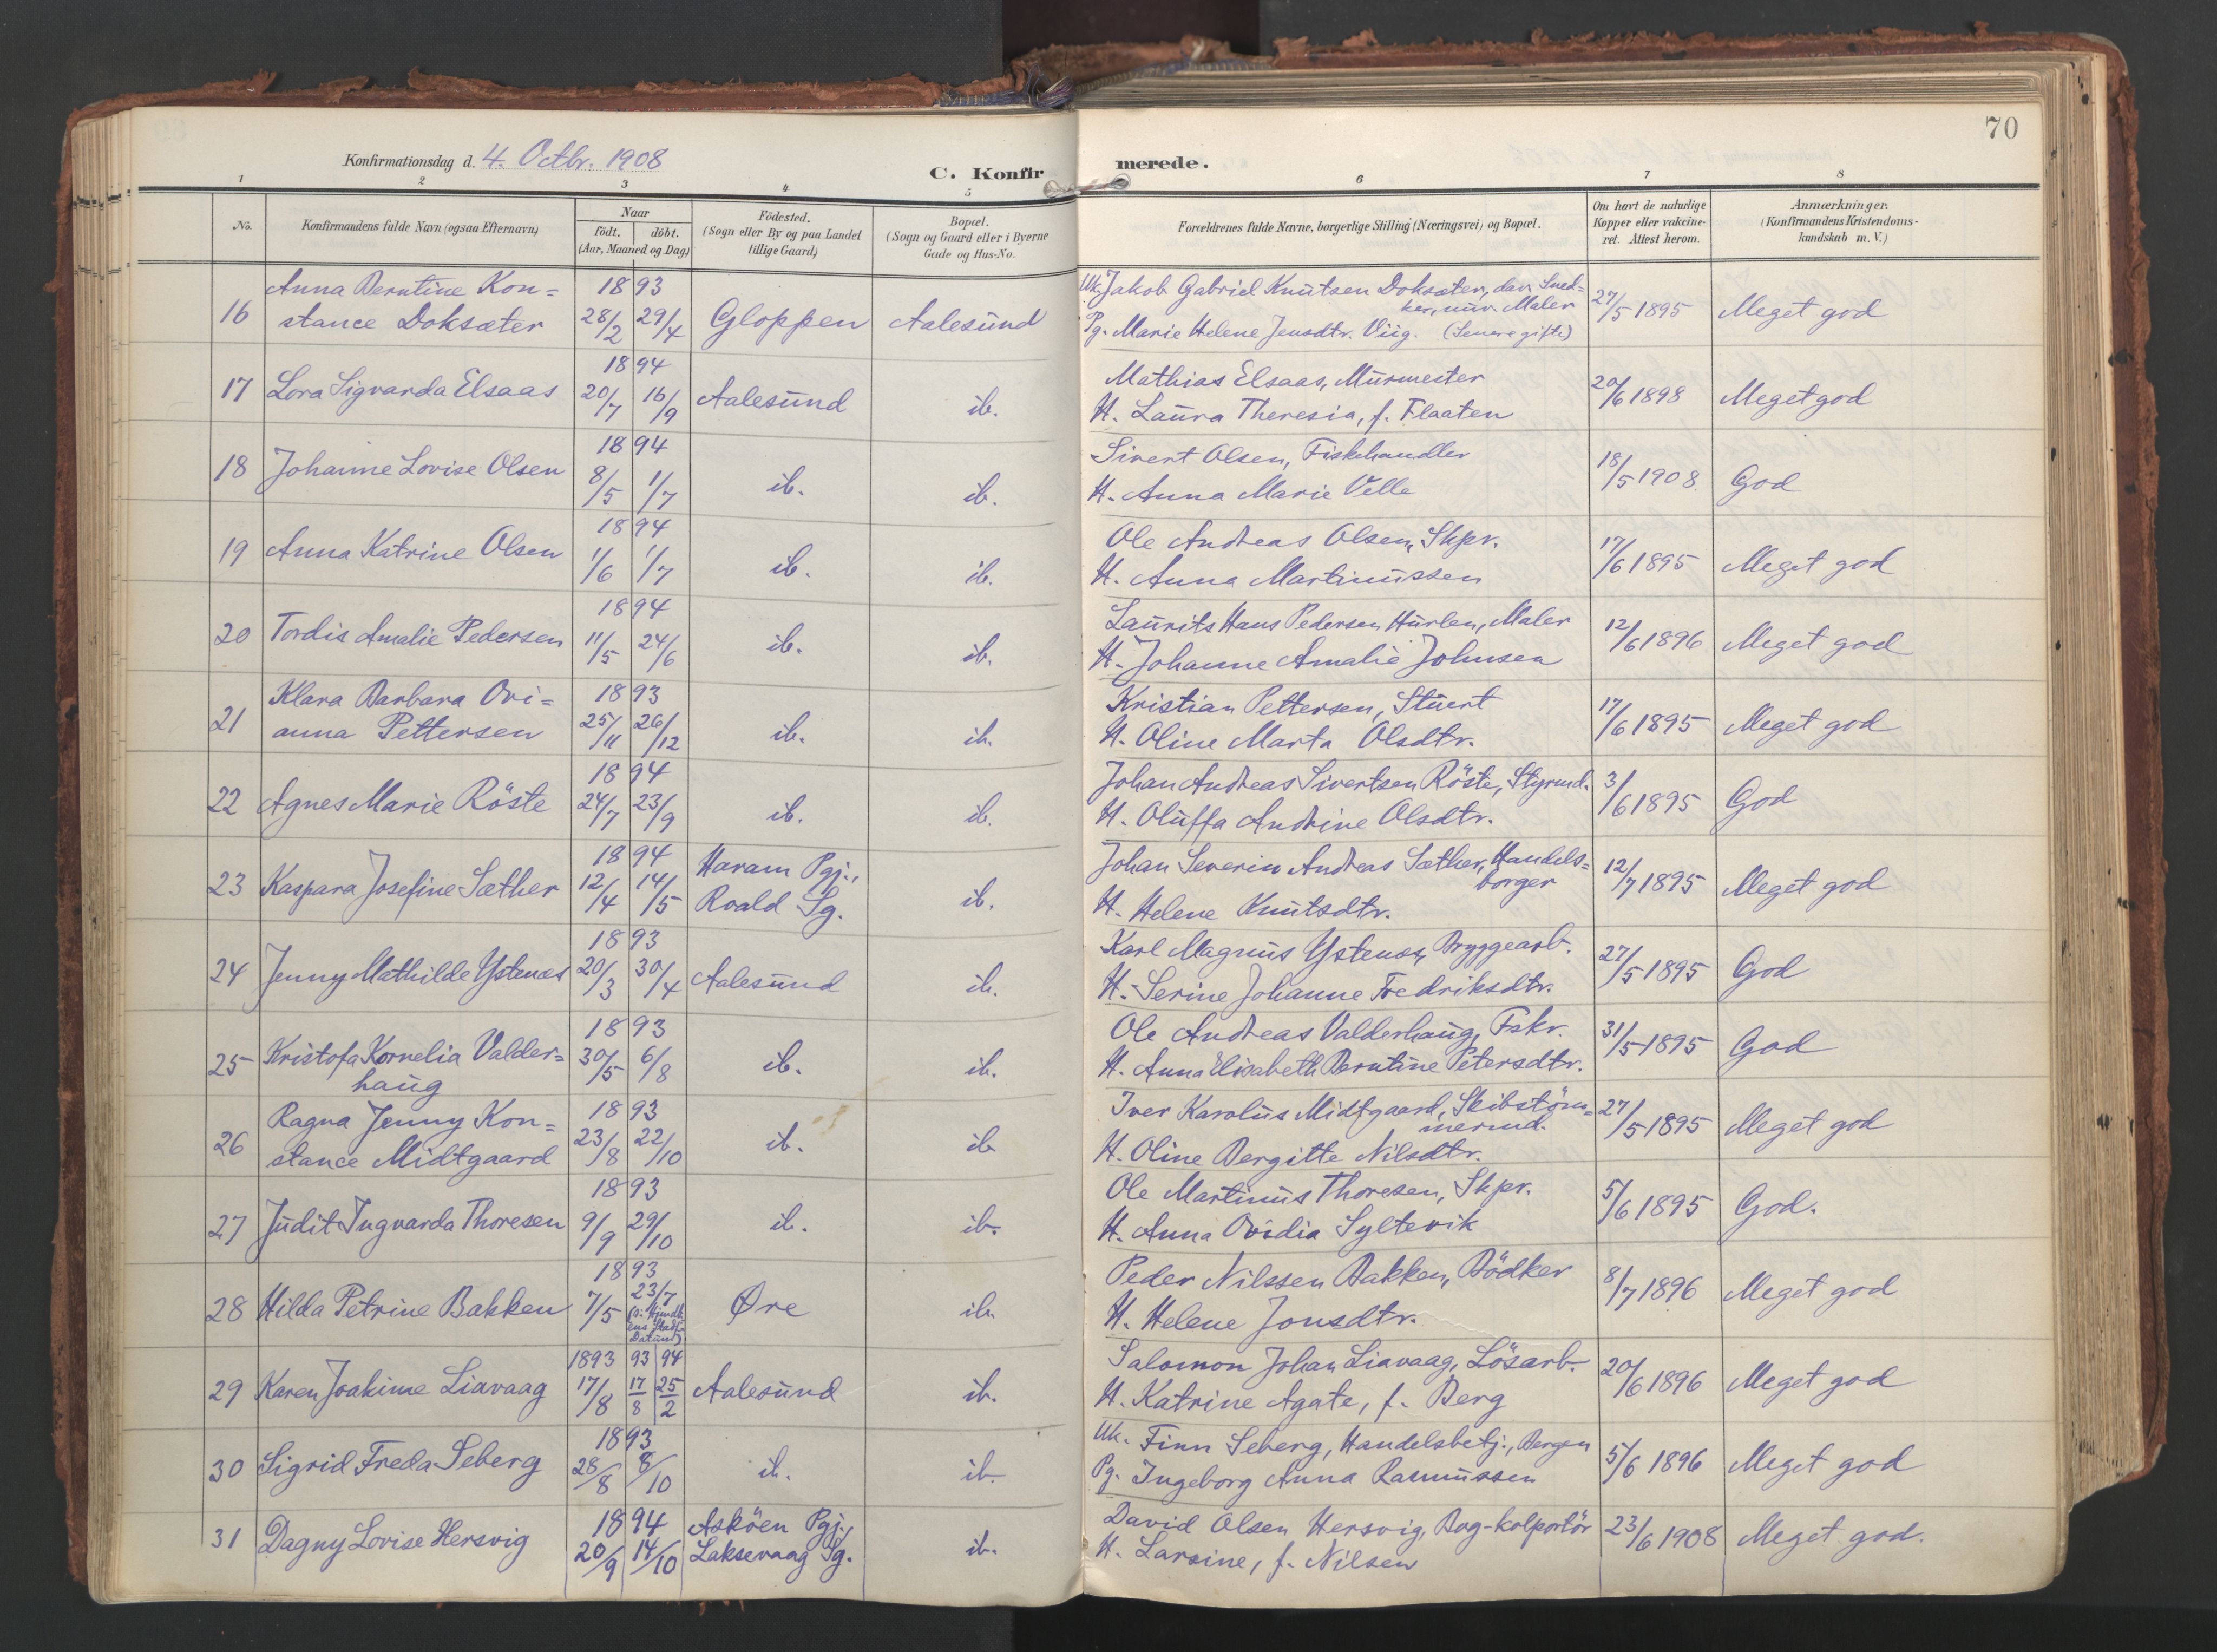 70
Konfirmationsdag d. 4. Octbr. 1908
C. Konfirmerede.
1 2 3 4 5 6 7 8
No.
Konfirmandens fulde Navn (ogsaa Efternavn)
Naar
født. døbt.
(Aar, Maaned og Dag)
Fødested.
(Sogn eller By og paa Landet
tillige Gaard)
Bopæl.
(Sogn og Gaard eller i Byerne
Gade og Hus-No.
Forældrenes fulde Navne, borgerlige Stilling (Næringsvei) og Bopæl.
Om havt de naturlige
Kopper eller vakcine-
ret. Attest herom.
Anmærkninger.
(Konfirmandens Kristendoms-
kundskab m. V.)
16 Anna Berntine Kon=
stance Doksæter
1893
28/2 29/4 Gloppen Aalesund
Uk. Jakob Gabriel Knutsen Doksæter, dav. Sned=
ker, nuv. Maler
Pg. Marie Helene Jensdtr. Viig. (Senere gifte)
27/5 1895 Meget god
17 Lora Sigvarda Elsaas
1894
20/7 16/9 Aalesund ib.
Mathias Elsaas, Murmester
H. Laura Theresia, f. Flaaten
20/6 1898 Meget god
18 Johanne Lovise Olsen
1894
8/5 1/7 ib. ib.
Sivert Olsen, Fiskehandler
H. Anna Marie Velle
18/5 1908 God
19 Anna Katrine Olsen
1894
1/6 1/7 ib. ib.
Ole Andreas Olsen, Skpr.
H. Anna Martinussen
17/6 1895 Meget god
20 Tordis Amalie Pedersen
1894
11/5 24/6 ib. ib.
Laurits Hans Pedersen Hurlen, Maler
H. Johanne Amalie Johnsen
12/6 1896 Meget god
21 Klara Barbara Ovi=
anna Pettersen
1893
25/11 26/12 ib. ib.
Kristian Pettersen, Stuert
H. Oline Marta Olsdtr.
17/6 1895 Meget god
22 Agnes Marie Röste
1894
24/7 23/9 ib. ib.
Johan Andreas Sivertsen Röste, Styrmd.
H. Oluffa Andrine Olsdtr.
3/6 1895 God
23 Kaspara Josefine Sæther
1894
12/4 14/5 Haram Pgj.,
Roald Sg. ib.
Johan Severin Andreas Sæther, Handels=
borger
H. Helene Knutsdtr.
12/7 1895 Meget god
24 Jenny Mathilde Ystenæs
1893
20/3 30/4 Aalesund ib.
Karl Magnus Ystenæs, Bryggearb.
H. Serine Johanne Fredriksdtr.
27/5 1895 God
25 Kristofa Kornelia Valder=
haug
1893
30/5 6/8 ib. ib.
Ole Andreas Valderhaug, Fskr.
H. Anna Elisabeth Berntine Petersdtr.
31/5 1895 God
26 Ragna Jenny Kon=
stance Midtgaard
1893
23/8 22/10 ib. ib
Iver Karolus Midtgaard, Skibstöm=
mermd.
H. Oline Bergitte Nilsdtr.
27/5 1895 Meget god
27 Judit Ingvarda Thoresen
1893
9/9 29/10 ib. ib.
Ole Martinus Thoresen, Skpr.
H. Anna Ovidia Syltevik
5/6 1895 God.
28 Hilda Petrine Bakken
1893
7/5 23/7 Øre ib.
Peder Nilssen Bakken, Bödker
H. Helene Jonsdtr.
8/7 1896 Meget god
29 Karen Joakime Liavaag
1893 93 94
17/8 17/8 25/2 Aalesund ib.
Salomon Johan Liavaag, Lösarb.
H. Katrine Agate, f. Berg
20/6 1896 Meget god
30 Sigrid Freda Seberg
1893
28/8 8/10 ib. ib.
Uk. Finn Seberg, Handelsbetj., Bergen
Pg. Ingeborg Anna Rasmussen
5/6 1896 Meget god
31 Dagny Lovise Hersvig
1894
20/9 14/10 Asköen Pgj.,
Laksevaag Sg. ib.
David Olsen Hersvig, Bog-kolportör
H. Larsine, f. Nilsen
23/6 1908 Meget god.